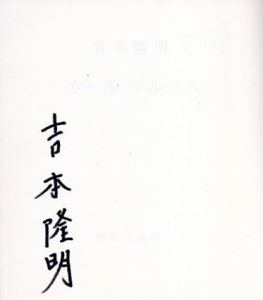 吉本隆明
カール・マルクス
吉本隆明